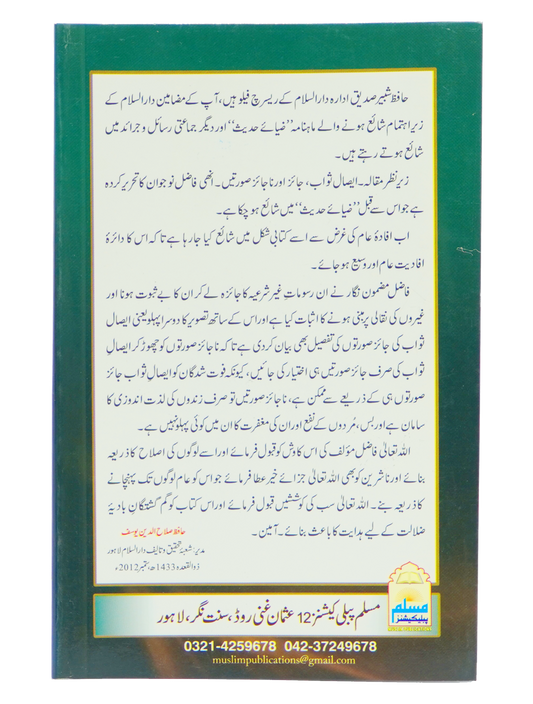 حافظ شبیر صدیق ادارہ دارالسلام کے ریسرچ فیلو ہیں، آپ کے مضامین دارالسلام کے
زیر اہتمام شائع ہونے والے ماہنامہ ”ضیائے حدیث“ اور دیگر جماعتی رسائل و جرائد میں
شائع ہوتے رہتے ہیں۔
زیر نظر مقالہ۔ ایصال ثواب، جائز اور ناجائز صورتیں۔ انھی فاضل نوجوان کا تحریر کردہ
ہے جو اس سے قبل ”ضیائے حدیث“ میں شائع ہو چکا ہے۔
اب افادۂ عام کی غرض سے اسے کتابی شکل میں شائع کیا جا رہا ہے تاکہ اس کا دائرۂ
افادیت عام اور وسیع ہو جائے۔
فاضل مضمون نگار نے ان رسومات غیر شرعیہ کا جائزہ لے کر ان کا بے ثبوت ہونا اور
غیروں کی نقالی پر مبنی ہونے کا اثبات کیا ہے اور اس کے ساتھ تصویر کا دوسرا پہلو یعنی ایصال
ثواب کی جائز صورتوں کی تفصیل بھی بیان کر دی ہے تاکہ ناجائز صورتوں کو چھوڑ کر ایصال
ثواب کی صرف جائز صورتیں ہی اختیار کی جائیں، کیونکہ فوت شدگان کو ایصال ثواب جائز
صورتوں ہی کے ذریعے سے ممکن ہے، ناجائز صورتیں تو صرف زندوں کی لذت اندوزی کا
سامان ہے اور بس، مُردوں کے نفع اور ان کی مغفرت کا ان میں کوئی پہلو نہیں ہے۔
اللہ تعالیٰ فاضل مؤلف کی اس کاوش کو قبول فرمائے اور اسے لوگوں کی اصلاح کا ذریعہ
بنائے اور ناشرین کو بھی اللہ تعالیٰ جزائے خیر عطا فرمائے جو اس کو عام لوگوں تک پہنچانے
کا ذریعہ بنے۔ اللہ تعالیٰ سب کی کوششیں قبول فرمائے اور اس کتاب کو گم گشتگانِ بادیۂ
ضلالت کے لیے ہدایت کا باعث بنائے۔ آمین۔
حافظ صلاح الدین یوسف
مدیر: شعبۂ تحقیق و تالیف دارالسلام لاہور
ذوالقعدہ 1433ھ، ستمبر 2012ء
مسلم پبلی کیشنز 12 عثمان غنی روڈ، سنت نگر، لاہور
مسلم
پبلیکیشنز
0321-4259678 042-37249678
muslimpublications@gmail.com